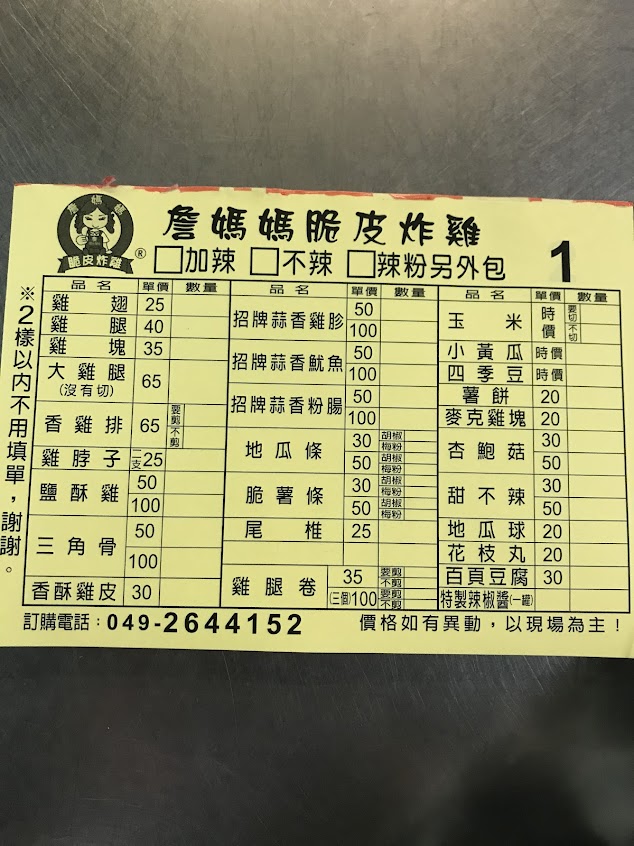 詹媽媽
脆皮炸雞
®
詹媽媽脆皮炸雞
□加辣 □不辣 □辣粉另外包 1
※2樣以內不用填單，謝謝。
品名 單價 數量
雞翅 25
雞腿 40
雞塊 35
大雞腿 (沒有切) 65
香雞排 65 要剪 不剪
雞脖子 二支25
鹽酥雞 50
100
三角骨 50
100
香酥雞皮 30
品名 單價 數量
招牌蒜香雞胗 50
100
招牌蒜香魷魚 50
100
招牌蒜香粉腸 50
100
地瓜條 30 胡椒 梅粉
50 胡椒 梅粉
脆薯條 30 胡椒 梅粉
50 胡椒 梅粉
尾椎 25
雞腿卷 35 要剪 不剪
(三個)100 要剪 不剪
品名 單價 數量
玉米 時價 要切 不切
小黃瓜 時價
四季豆 時價
薯餅 20
麥克雞塊 20
杏鮑菇 30
50
甜不辣 30
50
地瓜球 20
花枝丸 20
百頁豆腐 30
特製辣椒醬(一罐)
訂購電話：049-2644152 價格如有異動，以現場為主！